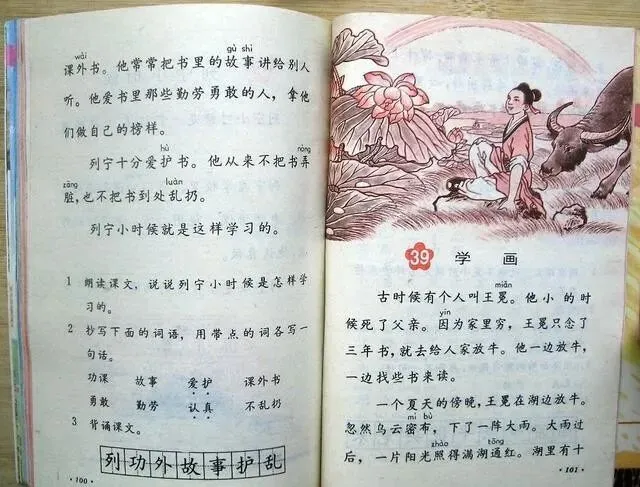 wài gù shi
课外书。他常常把书里的故事讲给别人
听。他爱书里那些勤劳勇敢的人，拿他
们做自己的榜样。
hù nòng
列宁十分爱护书。他从来不把书弄
zāng luàn
脏，也不把书到处乱扔。
列宁小时候就是这样学习的。
1 朗读课文，说说列宁小时候是怎样学
习的。
2 抄写下面的词语，用带点的词各写一
句话。
功课 故事 爱护 课外书
勇敢 勤劳 认真 不乱扔
3 背诵课文。
列功外故事护乱
·100·
39 学 画
miǎn
古时候有个人叫王冕。他小的时
yīn
候死了父亲。因为家里穷，王冕只念了
三年书，就去给人家放牛。他一边放牛，
一边找些书来读。
一个夏天的傍晚，王冕在湖边放牛。
mì bù
忽然乌云密布，下了一阵大雨。大雨过
zhào tōng
后，一片阳光照得满湖通红。湖里有十
·101·